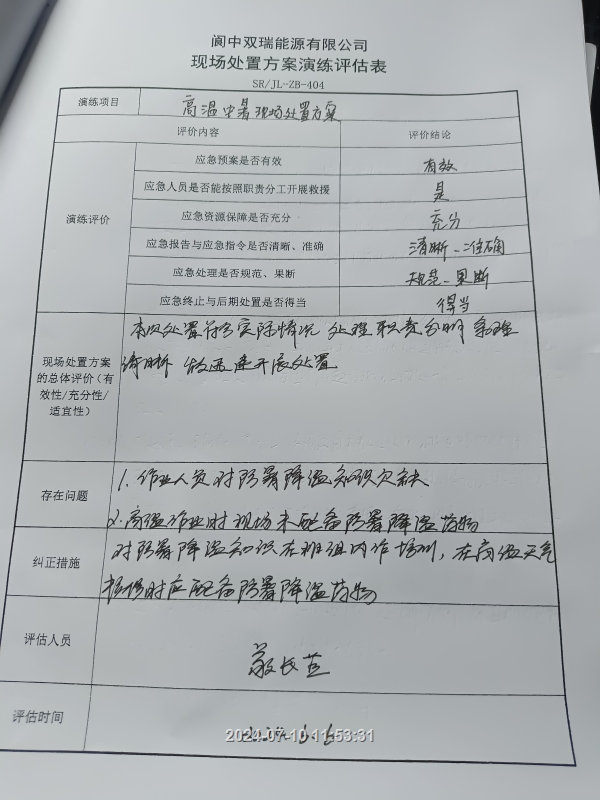 阆中双瑞能源有限公司
现场处置方案演练评估表
SR/JL-ZB-404
演练项目 高温中暑现场处置方案
评价内容 评价结论
演练评价
应急预案是否有效 有效
应急人员是否能按照职责分工开展救援 是
应急资源保障是否充分 充分
应急报告与应急指令是否清晰、准确 清晰、准确
应急处理是否规范、果断 规范、果断
应急终止与后期处置是否得当 得当
现场处置方案
的总体评价(有
效性/充分性/
适宜性)
本次处置符合实际情况 处理职责分明 条理
清晰 能迅速开展处置
存在问题
1. 作业人员对防暑降温知识欠缺
2. 高温作业时现场未配备防暑降温药物
纠正措施
对防暑降温知识在班组内作培训,在高温天气
时应配备防暑降温药物
评估人员
评估时间
2024-07-10 11:53:31